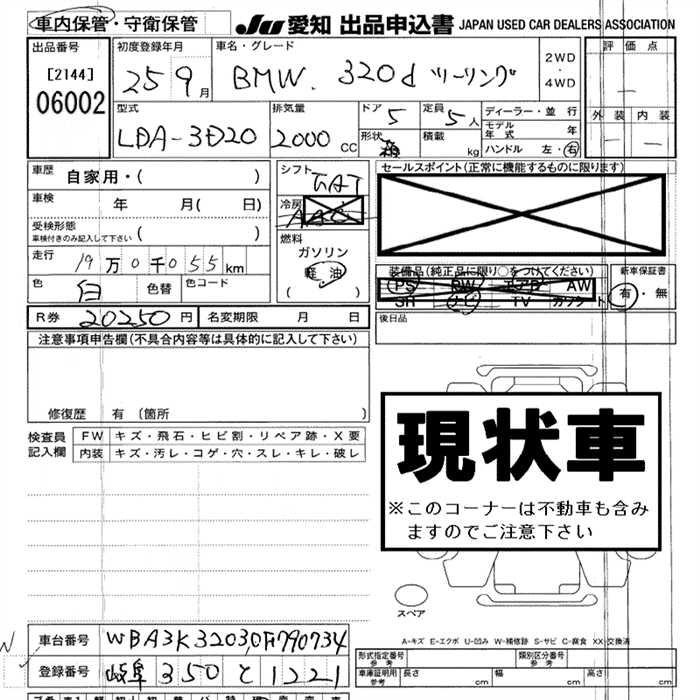 車内保管・守衛保管
JU 愛知 出品申込書 JAPAN USED CAR DEALERS ASSOCIATION
出品番号
[2144]
06002
初度登録年月
25 9月
車名・グレード
BMW. 320d ツーリング
2WD
・
4WD
評価点
型式
LDA-3D20
排気量
2000 CC
ドア 5
定員 5人
形状
積載 kg
ディーラー・並行
モデル年式 年
ハンドル 左・右
外装 内装
車歴 自家用・( )
車検 年 月( 日)
受検形態
車検付きのみ記入して下さい ( )
走行 19万0千055km
色 白 色替 色コード
シフト FAT
冷房 AAC
燃料
ガソリン
軽油
( )
セールスポイント(正常に機能するものに限ります)
装備品(純正品に限り○をつけてください)
PS PW エアB AW
SR ナビ TV カセット
新車保証書
有・無
R券 20250円 名変期限 月 日
後日品
注意事項申告欄(不具合内容等は具体的に記入して下さい)
修復歴 有 (箇所 )
検査員記入欄
FW キズ・飛石・ヒビ割・リペア跡・X要
内装 キズ・汚レ・コゲ・穴・スレ・キレ・破レ
現状車
※このコーナーは不動車も含み
ますのでご注意下さい
スペア
A-キズ E-エクボ U-凹み W-補修跡 S-サビ C-腐食 XX-交換済
車台番号 WBA3K32030F790734
登録番号 岐阜 350 と 1221
形式指定番号 参考
類別区分番号 参考
車庫証明用 参考 長さ cm 幅 cm 高さ cm